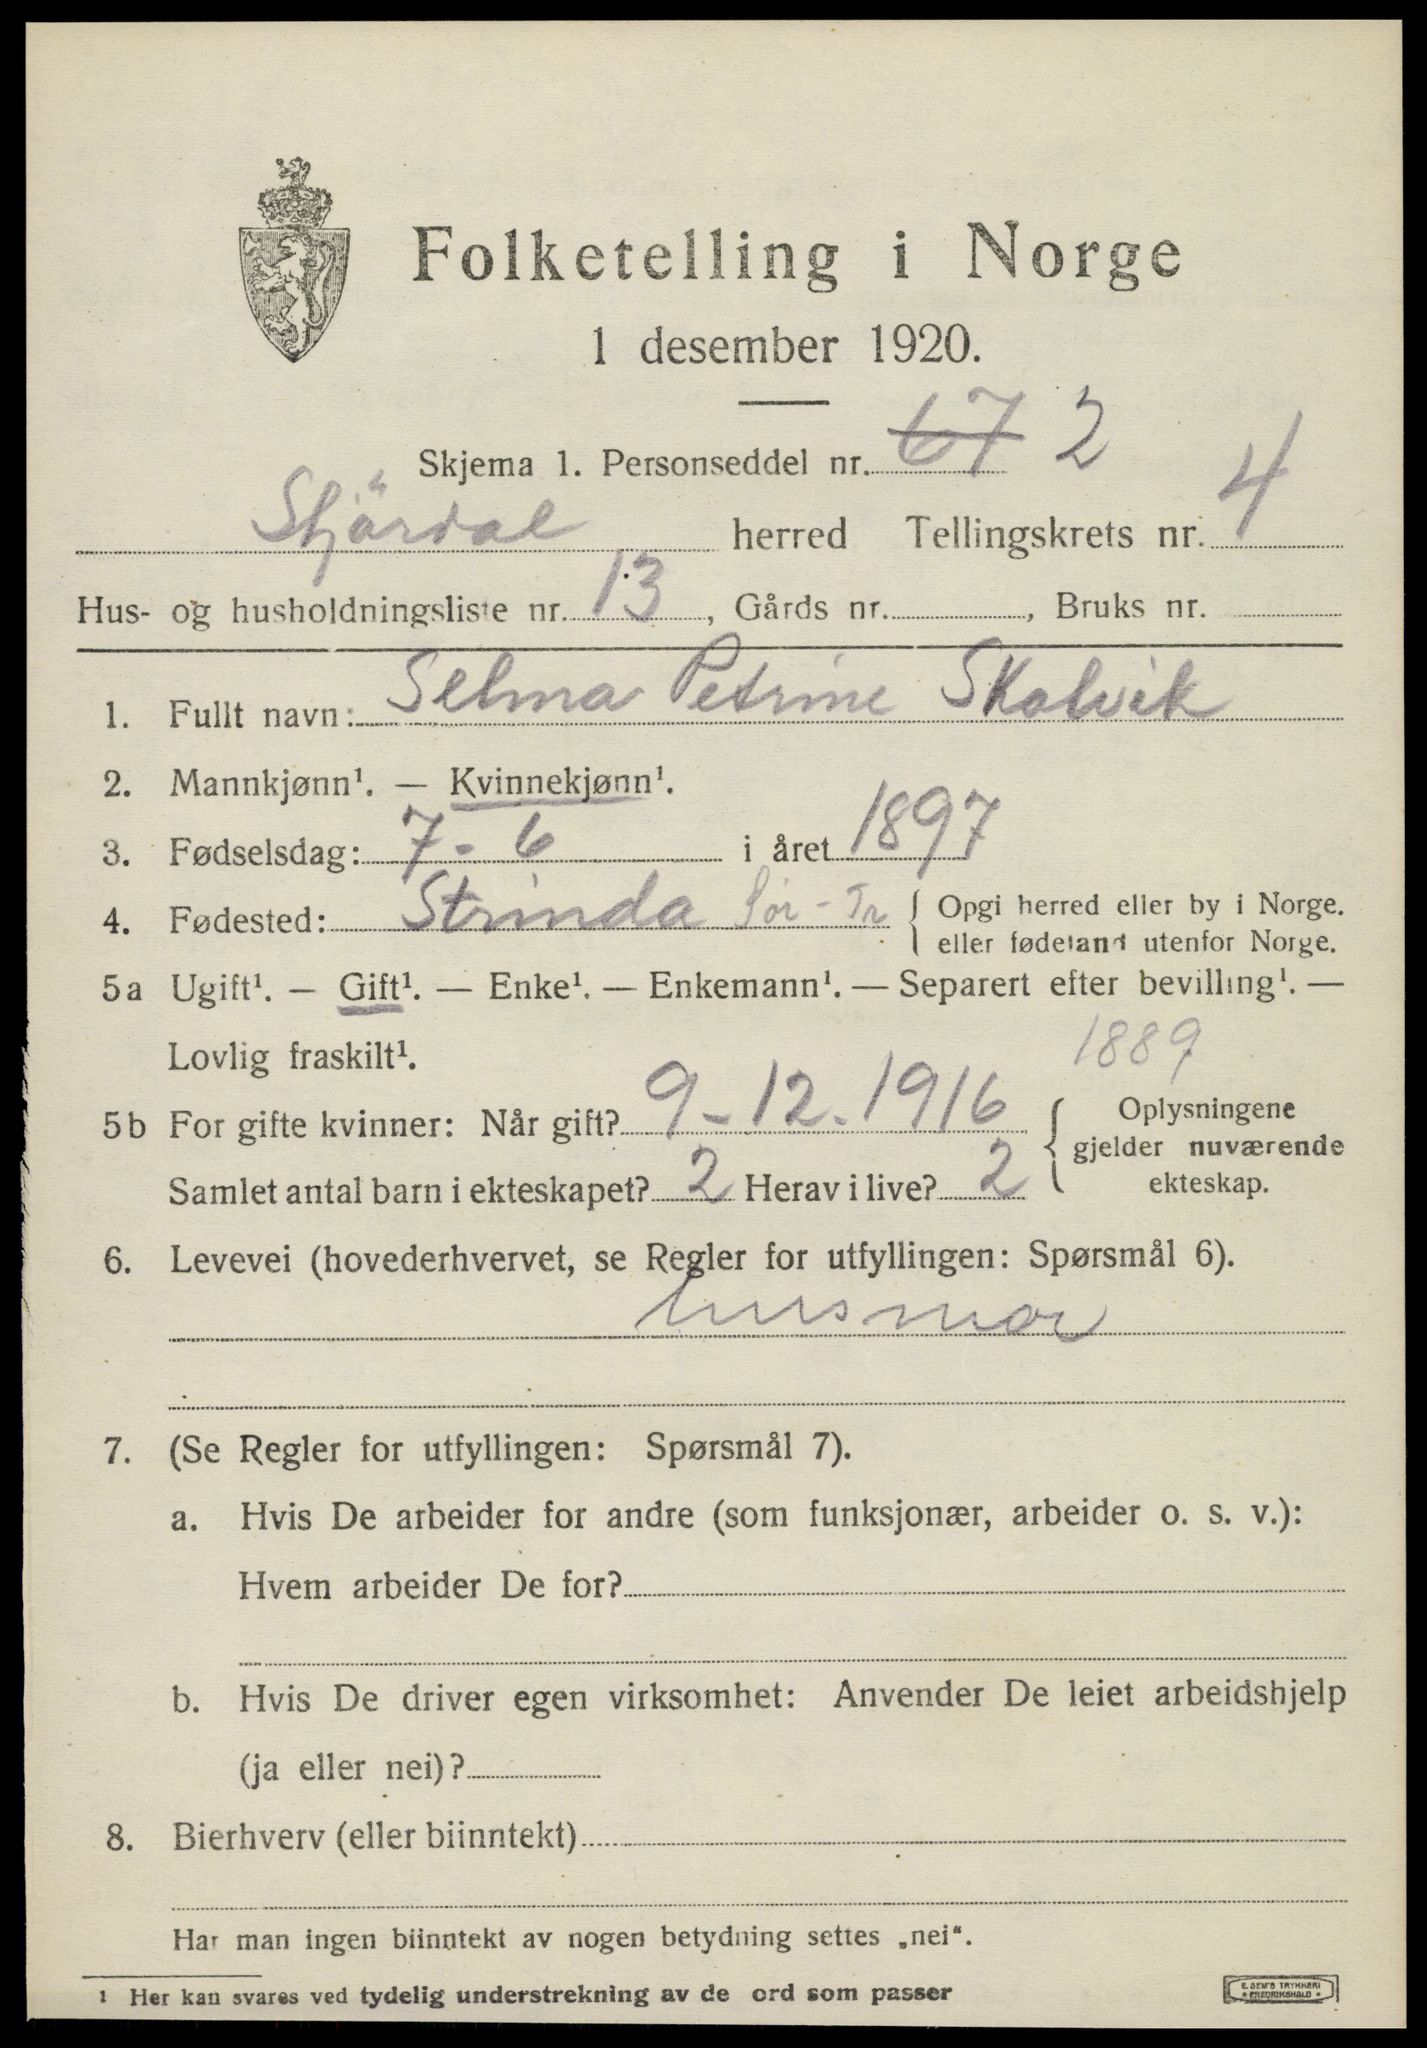 Folketelling i Norge
1 desember 1920.
Skjema 1. Personseddel nr. 67 2
Stjördal herred Tellingskrets nr. 4
Hus- og husholdningsliste nr. 13, Gårds nr. , Bruks nr.
1. Fullt navn: Selma Petrine Skalvik
2. Mannkjønn¹. — Kvinnekjønn¹.
3. Fødselsdag: 7-6 i året 1897
4. Fødested: Strinda Sör-Tr { Opgi herred eller by i Norge.
eller fødeland utenfor Norge.
5a Ugift¹. — Gift¹. — Enke¹. — Enkemann¹. — Separert efter bevilling¹. —
Lovlig fraskilt¹. 1889
5b For gifte kvinner: Når gift? 9-12-1916 { Oplysningene
gjelder nuværende
Samlet antal barn i ekteskapet? 2 Herav i live? 2 ekteskap.
6. Levevei (hovederhvervet, se Regler for utfyllingen: Spørsmål 6).
husmor
7. (Se Regler for utfyllingen: Spørsmål 7).
a. Hvis De arbeider for andre (som funksjonær, arbeider o. s. v.):
Hvem arbeider De for?
b. Hvis De driver egen virksomhet: Anvender De leiet arbeidshjelp
(ja eller nei)?
8. Bierhverv (eller biinntekt)
Har man ingen biinntekt av nogen betydning settes „nei“.
¹ Her kan svares ved tydelig understrekning av de ord som passer
E. SEM'S TRYKKERI
• FREDRIKSHALD •